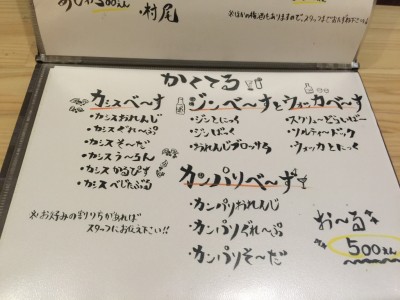 ・村尾
かくてる
カシスべ〜す
・カシスおれんじ
・カシスぐれ〜ぷ
・カシスそ〜だ
・カシスう〜ろん
・カシスかるぴす
・カシスべじたぶる
※お好みの割り方があれば
スタッフにお伝え下さい!!
ジンべ〜すとウォッカべ〜す
・ジンとにっく
・ジンばっく
・おれんじブロッサム
・スクリュ〜どらいばー
・ソルティ〜ドック
・ウォッカとにっく
カンパリべ〜す
・カンパリおれんじ
・カンパリぐれ〜ぷ
・カンパリそ〜だ
お〜る
500えん